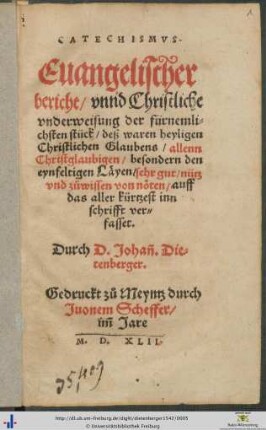 CATECHISMVS.
Euangelischer
bericht/ vnnd Christliche
vnderweisung der fürnemli-
chsten stück/ deß waren heyligen
Christlichen Glaubens/ allenn
Christglaubigen/ besondern den
eynfeltigen Läyen/ sehr gut/ nütz
vnd zůwissen von nöten/ auff
das aller kürtzest inn
schrifft ver-
fasset.
Durch D. Johañ. Die-
tenberger.
Gedruckt zů Meyntz durch
Juonem Scheffer/
im̃ Jare
M. D. XLII.
http://dl.ub.uni-freiburg.de/diglit/dietenberger1542/0005
© Universitätsbibliothek Freiburg
Baden-Württemberg